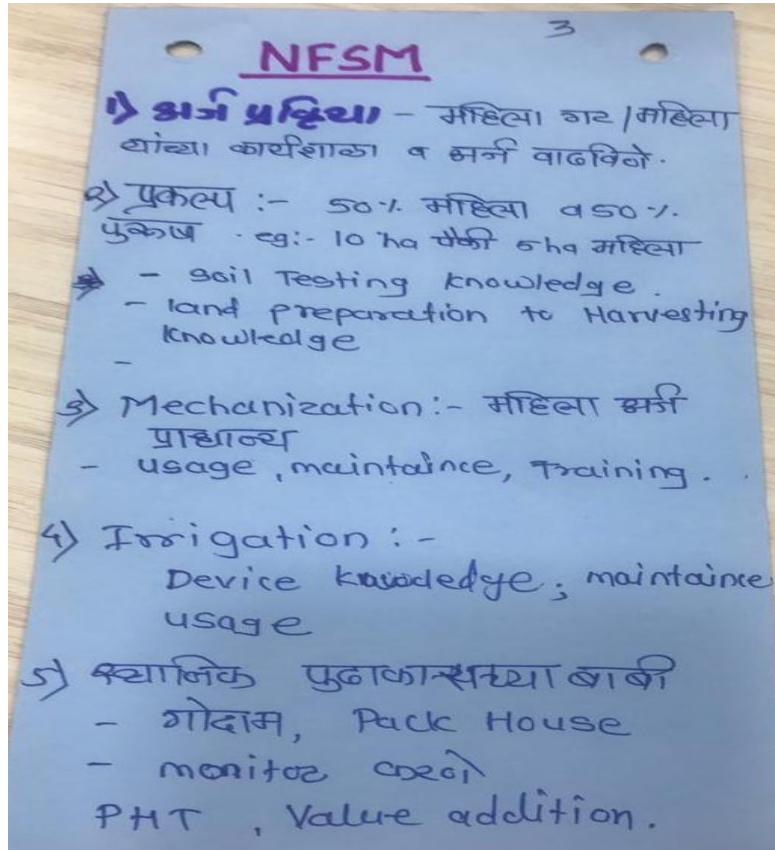 3
NFSM
१) अर्ज प्रक्रिया - महिला गट / महिला
यांच्या कार्यशाळा व अर्ज वाढविणे.
२) प्रकल्प :- 50% महिला व 50%
पुरुष . eg:- 10 ha पैकी 5 ha महिला
- Soil Testing Knowledge.
- land preparation to Harvesting
Knowledge
-
३) Mechanization:- महिला अर्ज
प्राधान्य
- usage, maintaince, Training.
4) Irrigation :-
Device knowledge; maintaince
usage
5) स्थानिक बाबी
- गोदाम, Pack House
- monitor करणे
PHT , Value addition.